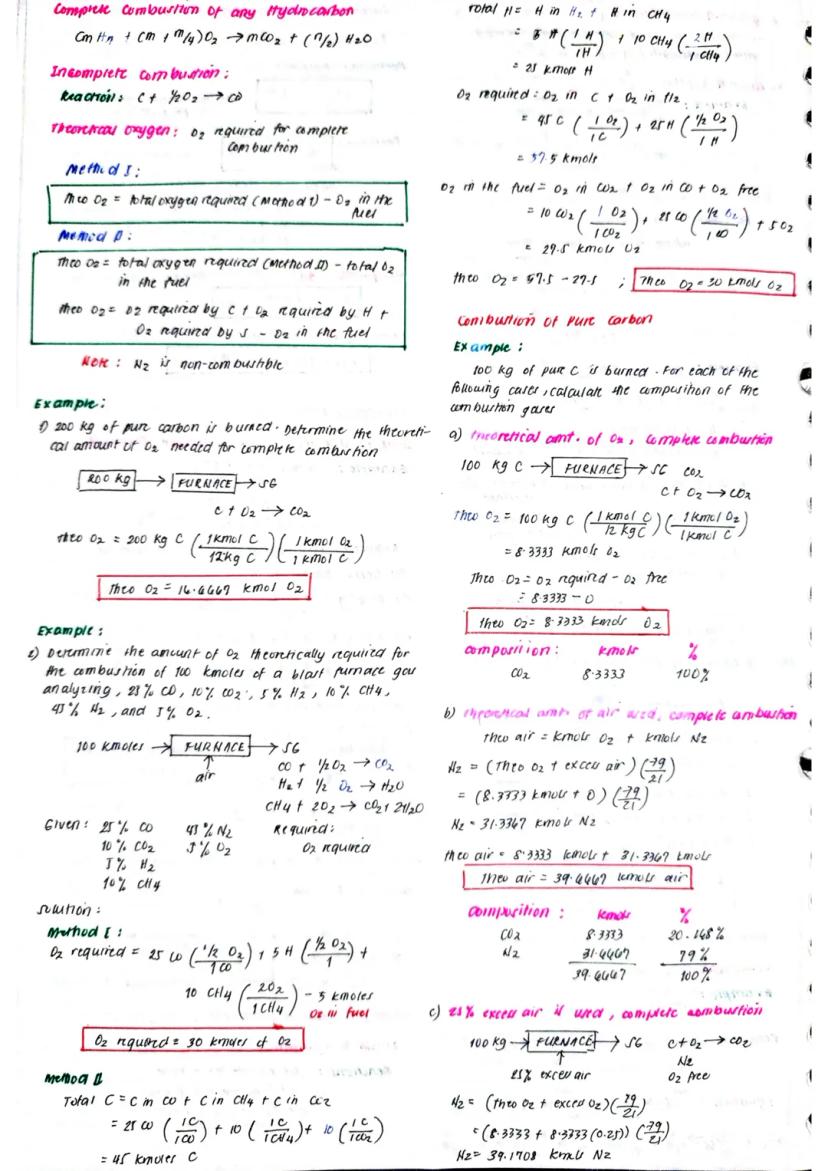 Complete Combustion of any Hydrocarbon
CmHn + (m + n/4)O2 → mCO2 + (n/2) H2O
Incomplete Combustion:
Reaction: C + 1/2O2 → CO
Theoretical oxygen: O2 required for complete
combustion
Method I:
Theo O2 = total oxygen required (Method I) - O2 in the
fuel
Method II:
Theo O2 = total oxygen required (Method II) - total O2
in the fuel
theo O2 = O2 required by C + O2 required by H +
O2 required by S - O2 in the fuel
Note: N2 is non-combustible
Example:
1) 200 kg of pure carbon is burned. Determine the theoreti-
cal amount of O2 needed for complete combustion
200 kg → FURNACE → SG
C + O2 → CO2
theo O2 = 200 kg C (1kmol C / 12kg C)(1kmol O2 / 1 kmol C)
Theo O2 = 16.6667 kmol O2
Example:
2) Determine the amount of O2 theoretically required for
the combustion of 100 kmoles of a blast furnace gas
analyzing, 25% CO, 10% CO2, 5% H2, 10% CH4,
45% N2, and 5% O2.
100 kmoles → FURNACE → SG
air
CO + 1/2O2 → CO2
H2 + 1/2 O2 → H2O
CH4 + 2O2 → CO2 + 2H2O
Given: 25% CO 45% N2 Required:
10% CO2 5% O2 O2 required
5% H2
10% CH4
Solution:
Method I:
O2 required = 25 CO (1/2 O2 / 1 CO) + 5 H (1/2 O2 / 1) +
10 CH4 (2O2 / 1CH4) - 5 kmoles
O2 in fuel
O2 required = 30 kmoles of O2
Method II
Total C = C in CO + C in CH4 + C in CO2
= 25 CO (1C / 1CO) + 10 (1C / 1CH4) + 10 (1C / 1CO2)
= 45 kmoles C
Total H = H in H2 + H in CH4
= 5 H (1 H / 1H) + 10 CH4 (2H / 1 CH4)
= 25 kmols H
O2 required = O2 in C + O2 in H2
= 45 C (1 O2 / 1C) + 25H (1/2 O2 / 1 H)
= 57.5 kmols
O2 in the fuel = O2 in CO2 + O2 in CO + O2 free
= 10 CO2 (1 O2 / 1CO2) + 25 CO (1/2 O2 / 1 CO) + 5O2
= 27.5 kmols O2
theo O2 = 57.5 - 27.5 ; Theo O2 = 30 kmols O2
Combustion of Pure Carbon
Example:
100 kg of pure C is burned. For each of the
following cases, calculate the composition of the
combustion gases
a) theoretical amt. of O2, complete combustion
100 kg C → FURNACE → SG CO2
C + O2 → CO2
Theo O2 = 100 kg C (1 kmol C / 12 kg C)(1 kmol O2 / 1 kmol C)
= 8.3333 kmols O2
Theo O2 = O2 required - O2 free
= 8.3333 - 0
theo O2 = 8.3333 kmols O2
Composition: kmols %
CO2 8.3333 100%
b) theoretical amt. of air used, complete combustion
Theo air = kmols O2 + kmols N2
N2 = (Theo O2 + excess air)(79/21)
= (8.3333 kmols + 0)(79/21)
N2 = 31.3367 kmols N2
theo air = 8.3333 kmols + 31.3367 kmols
Theo air = 39.6667 kmols air
Composition: kmols %
CO2 8.3333 20.168%
N2 31.6667 79%
39.6667 100%
c) 25% excess air is used, complete combustion
100 kg → FURNACE → SG C + O2 → CO2
N2
25% excess air O2 free
N2 = (theo O2 + excess O2)(79/21)
= (8.3333 + 8.3333 (0.25))(79/21)
N2 = 39.1708 kmols N2